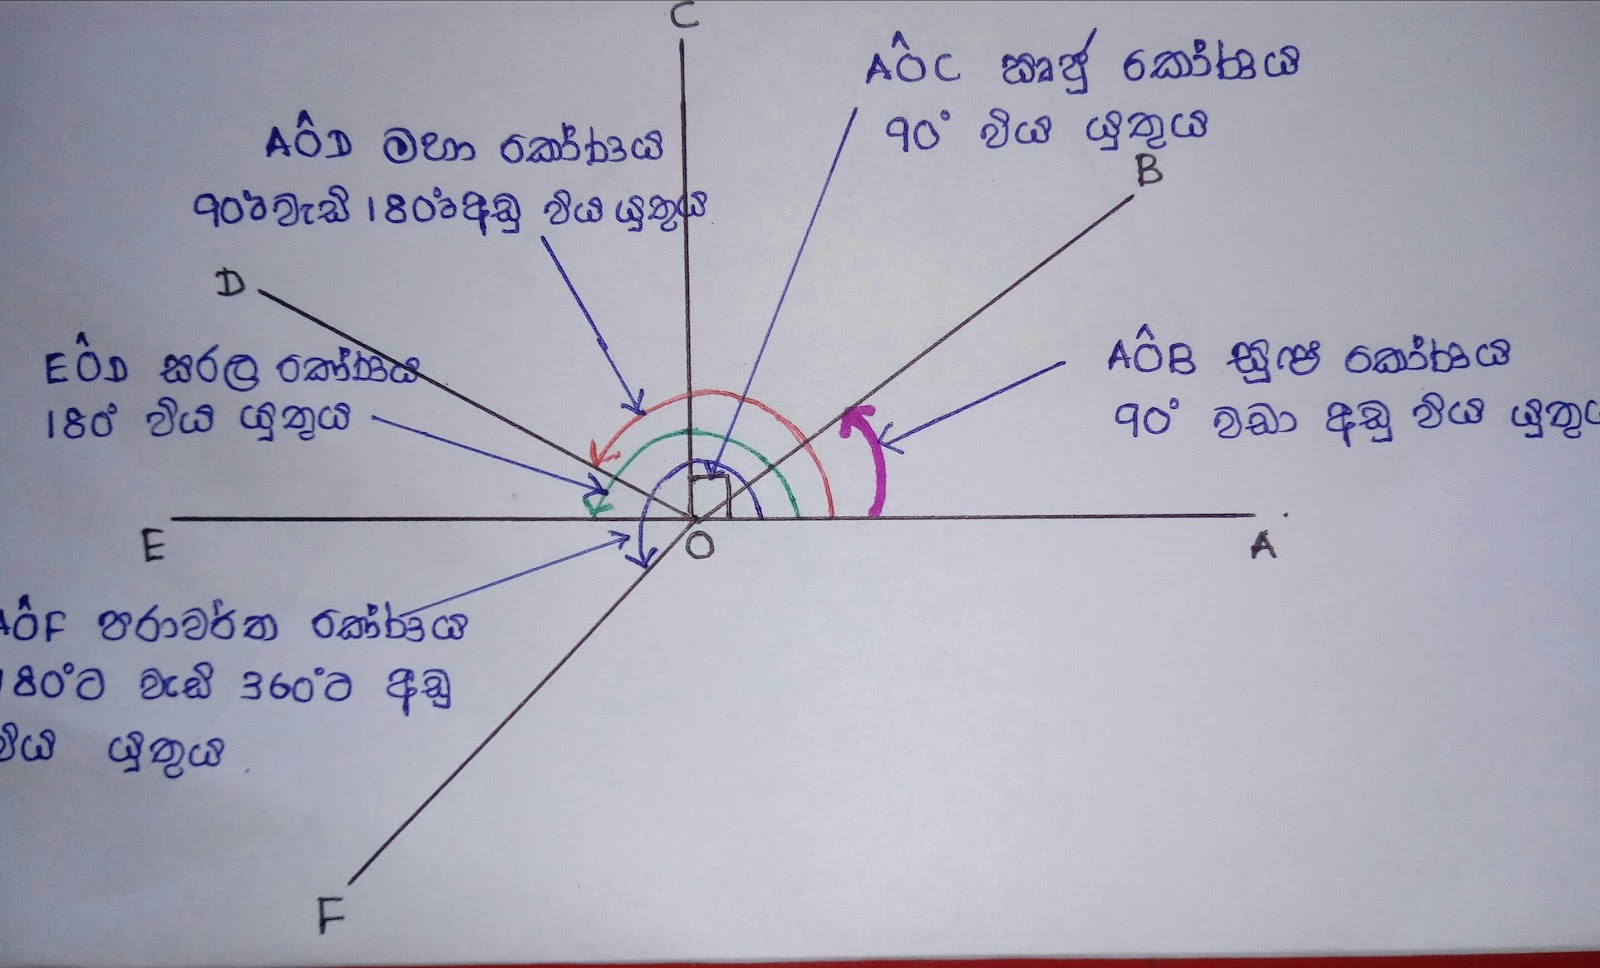 C
AÔC ඍජු කෝණය
90° විය යුතුය
AÔD මහා කෝණය
90°ට වැඩි 180°ට අඩු විය යුතුය
B
D
EÔD සරල කෝණය
180° විය යුතුය
AÔB සුළු කෝණය
90° වඩා අඩු විය යුතුය
E
O
A
AÔF පරාවර්ත කෝණය
180°ට වැඩි 360°ට අඩු
විය යුතුය.
F